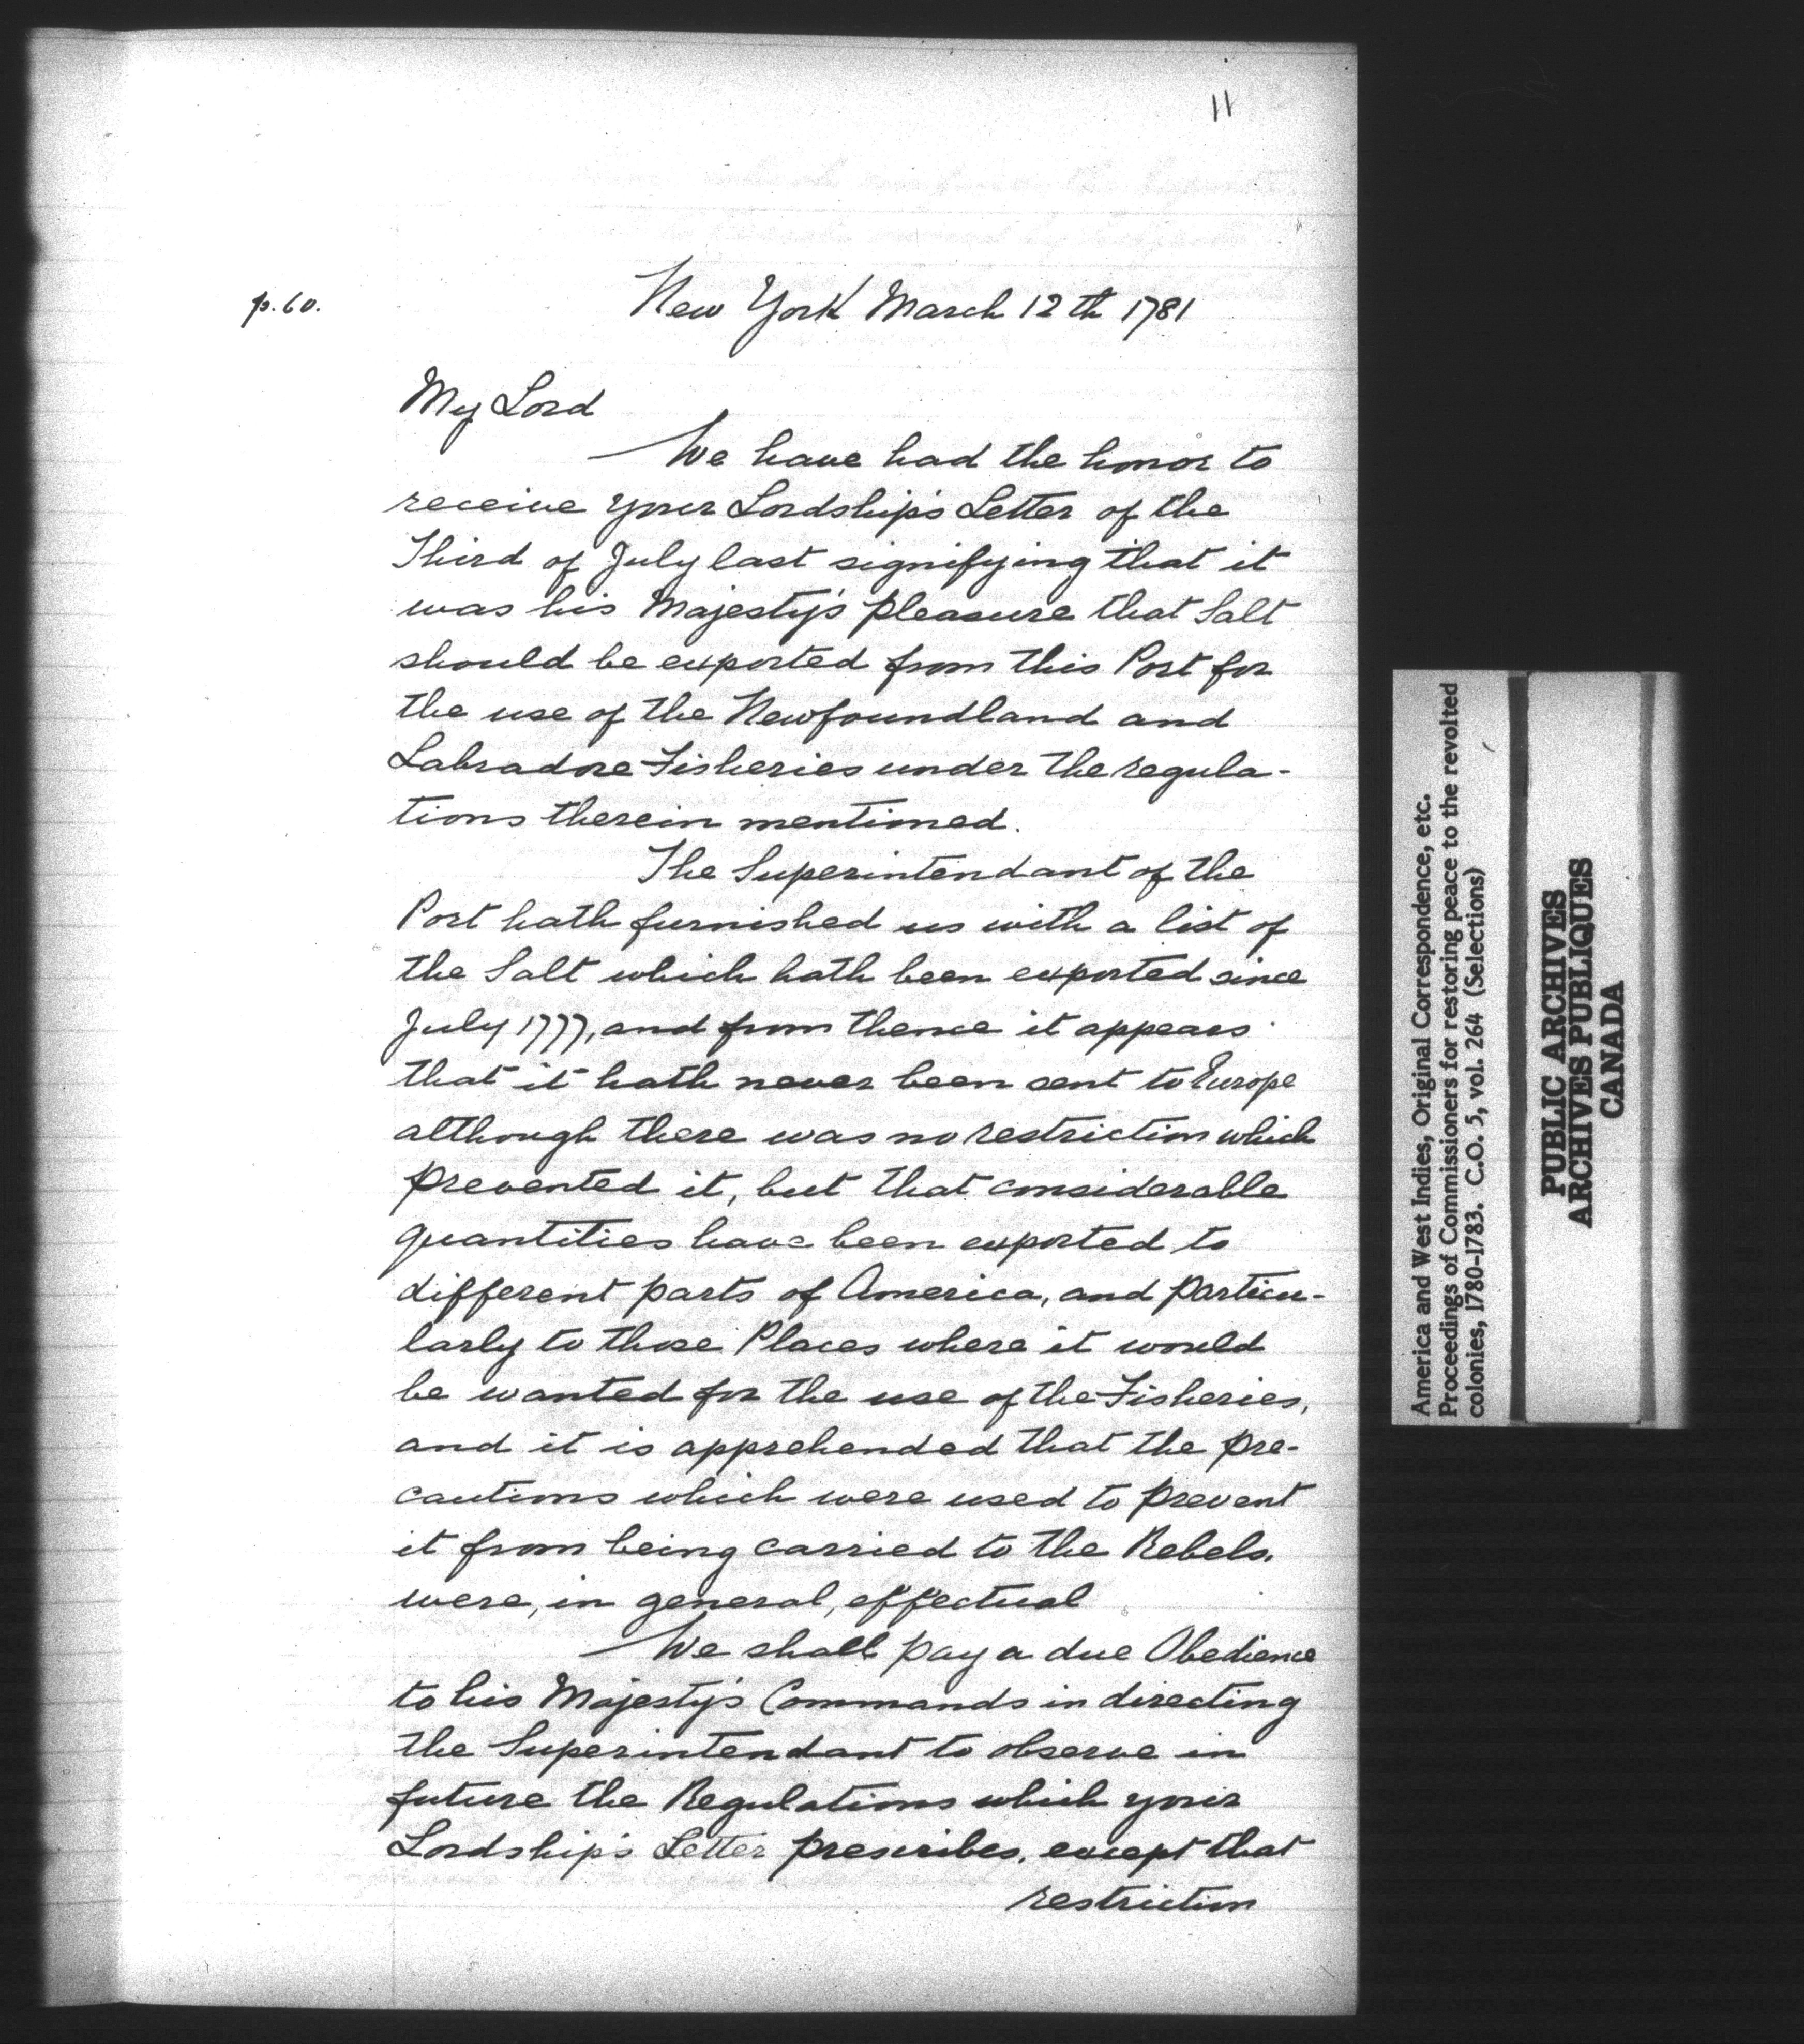 11
p. 60.
New York March 12th 1781
My Lord
We have had the honor to
receive your Lordship's Letter of the
Third of July last signifying that it
was his Majesty's pleasure that Salt
should be exported from this Port for
the use of the Newfoundland and
Labradore Fisheries under the regula-
tions therein mentioned.
The Superintendant of the
Port hath furnished us with a list of
the Salt which hath been exported since
July 1777, and from thence it appears
that it hath never been sent to Europe
although there was no restriction which
prevented it, but that considerable
quantities have been exported to
different parts of America, and particu-
larly to those Places where it would
be wanted for the use of the Fisheries,
and it is apprehended that the pre-
cautions which were used to prevent
it from being carried to the Rebels.
were, in general, effectual
We shall pay a due Obedience
to his Majesty's Commands in directing
the Superintendant to observe in
future the Regulations which your
Lordship's Letter prescribes, except that
restriction
America and West Indies, Original Correspondence, etc.
Proceedings of Commissioners for restoring peace to the revolted
colonies, 1780-1783. C.O. 5, vol. 264 (Selections)
PUBLIC ARCHIVES
ARCHIVES PUBLIQUES
CANADA